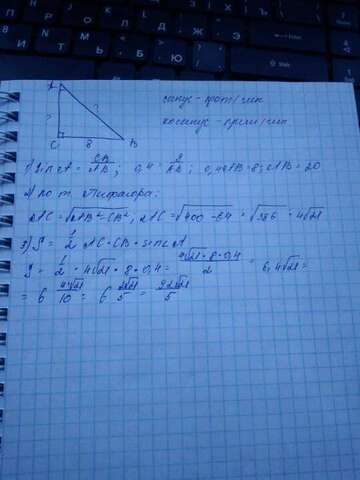 A
?
?
C 8 B
синус - прот/гип
косинус - прил/гип
1) sin A = CB/AB; 0,4 = 8/AB; 0,4AB = 8; AB = 20
2) по т. Пифагора:
AC = √AB² - CB², AC = √400 - 64 = √336 = 4√21
3) S = 1/2 AC · CB · sin A
S = 1/2 · 4√21 · 8 · 0,4 = 4√21 · 8 · 0,4/2 = 6,4√21 =
= 6 4√21/10 = 6 2√21/5 = 32√21/5